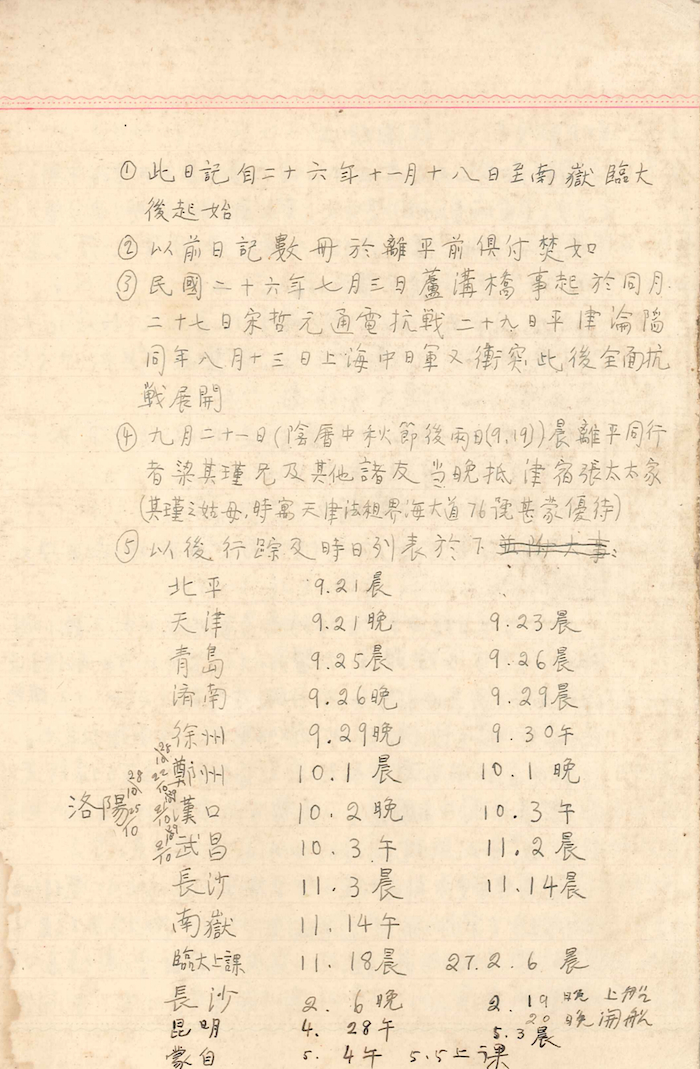 ① 此日記自二十六年十一月十八日至南嶽臨大
後起始
② 以前日記數冊於離平前俱付焚如
③ 民國二十六年七月三日蘆溝橋事起於同月
二十七日宋哲元通電抗戰二十九日平津淪陷
同年八月十三日上海中日軍又衝突此後全面抗
戰展開
④ 九月二十一日(陰曆中秋節後兩日(9,19))晨離平同行
者梁其瑾兄及其他諸友當晚抵津宿張太太家
(其瑾之姑母,時寓天津法租界海大道76號甚蒙優待)
⑤ 以後行踪及時日列表於下
北平 9.21晨
天津 9.21晚 9.23晨
青島 9.25晨 9.26晨
濟南 9.26晚 9.29晨
徐州 9.29晚 9.30午
鄭州 10.1晨 10.1晚
洛陽 28/10 25/10
漢口 10.2晚 10.3午
武昌 10.3午 11.2晨
長沙 11.3晨 11.14晨
南嶽 11.14午
臨大上課 11.18晨 27.2.6晨
長沙 2.6晚 2.19晚上船
20晚開船
昆明 4.28午 5.3晨
蒙自 5.4午 5.5上課